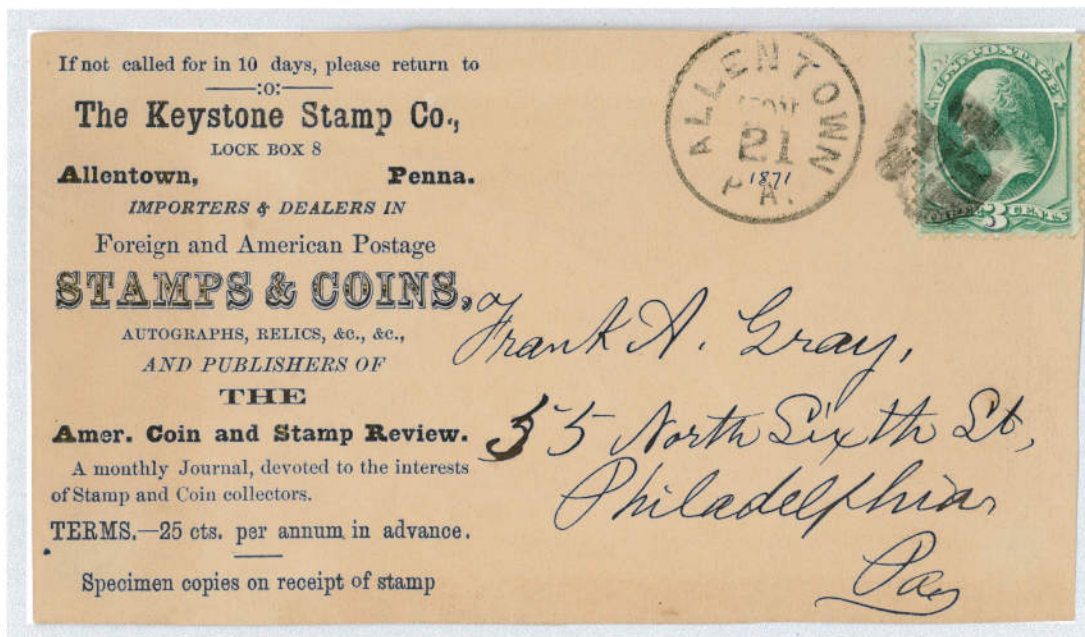 If not called for in 10 days, please return to
:o:
The Keystone Stamp Co.,
LOCK BOX 8
Allentown, Penna.
IMPORTERS & DEALERS IN
Foreign and American Postage
STAMPS & COINS,
AUTOGRAPHS, RELICS, &c., &c.,
AND PUBLISHERS OF
THE
Amer. Coin and Stamp Review.
A monthly Journal, devoted to the interests
of Stamp and Coin collectors.
TERMS.—25 cts. per annum in advance.
Specimen copies on receipt of stamp
ALLENTOWN
21
1871
PA.
U.S. POSTAGE
3 CENTS
Frank A. Gray,
55 North Sixth St,
Philadelphia
Pa